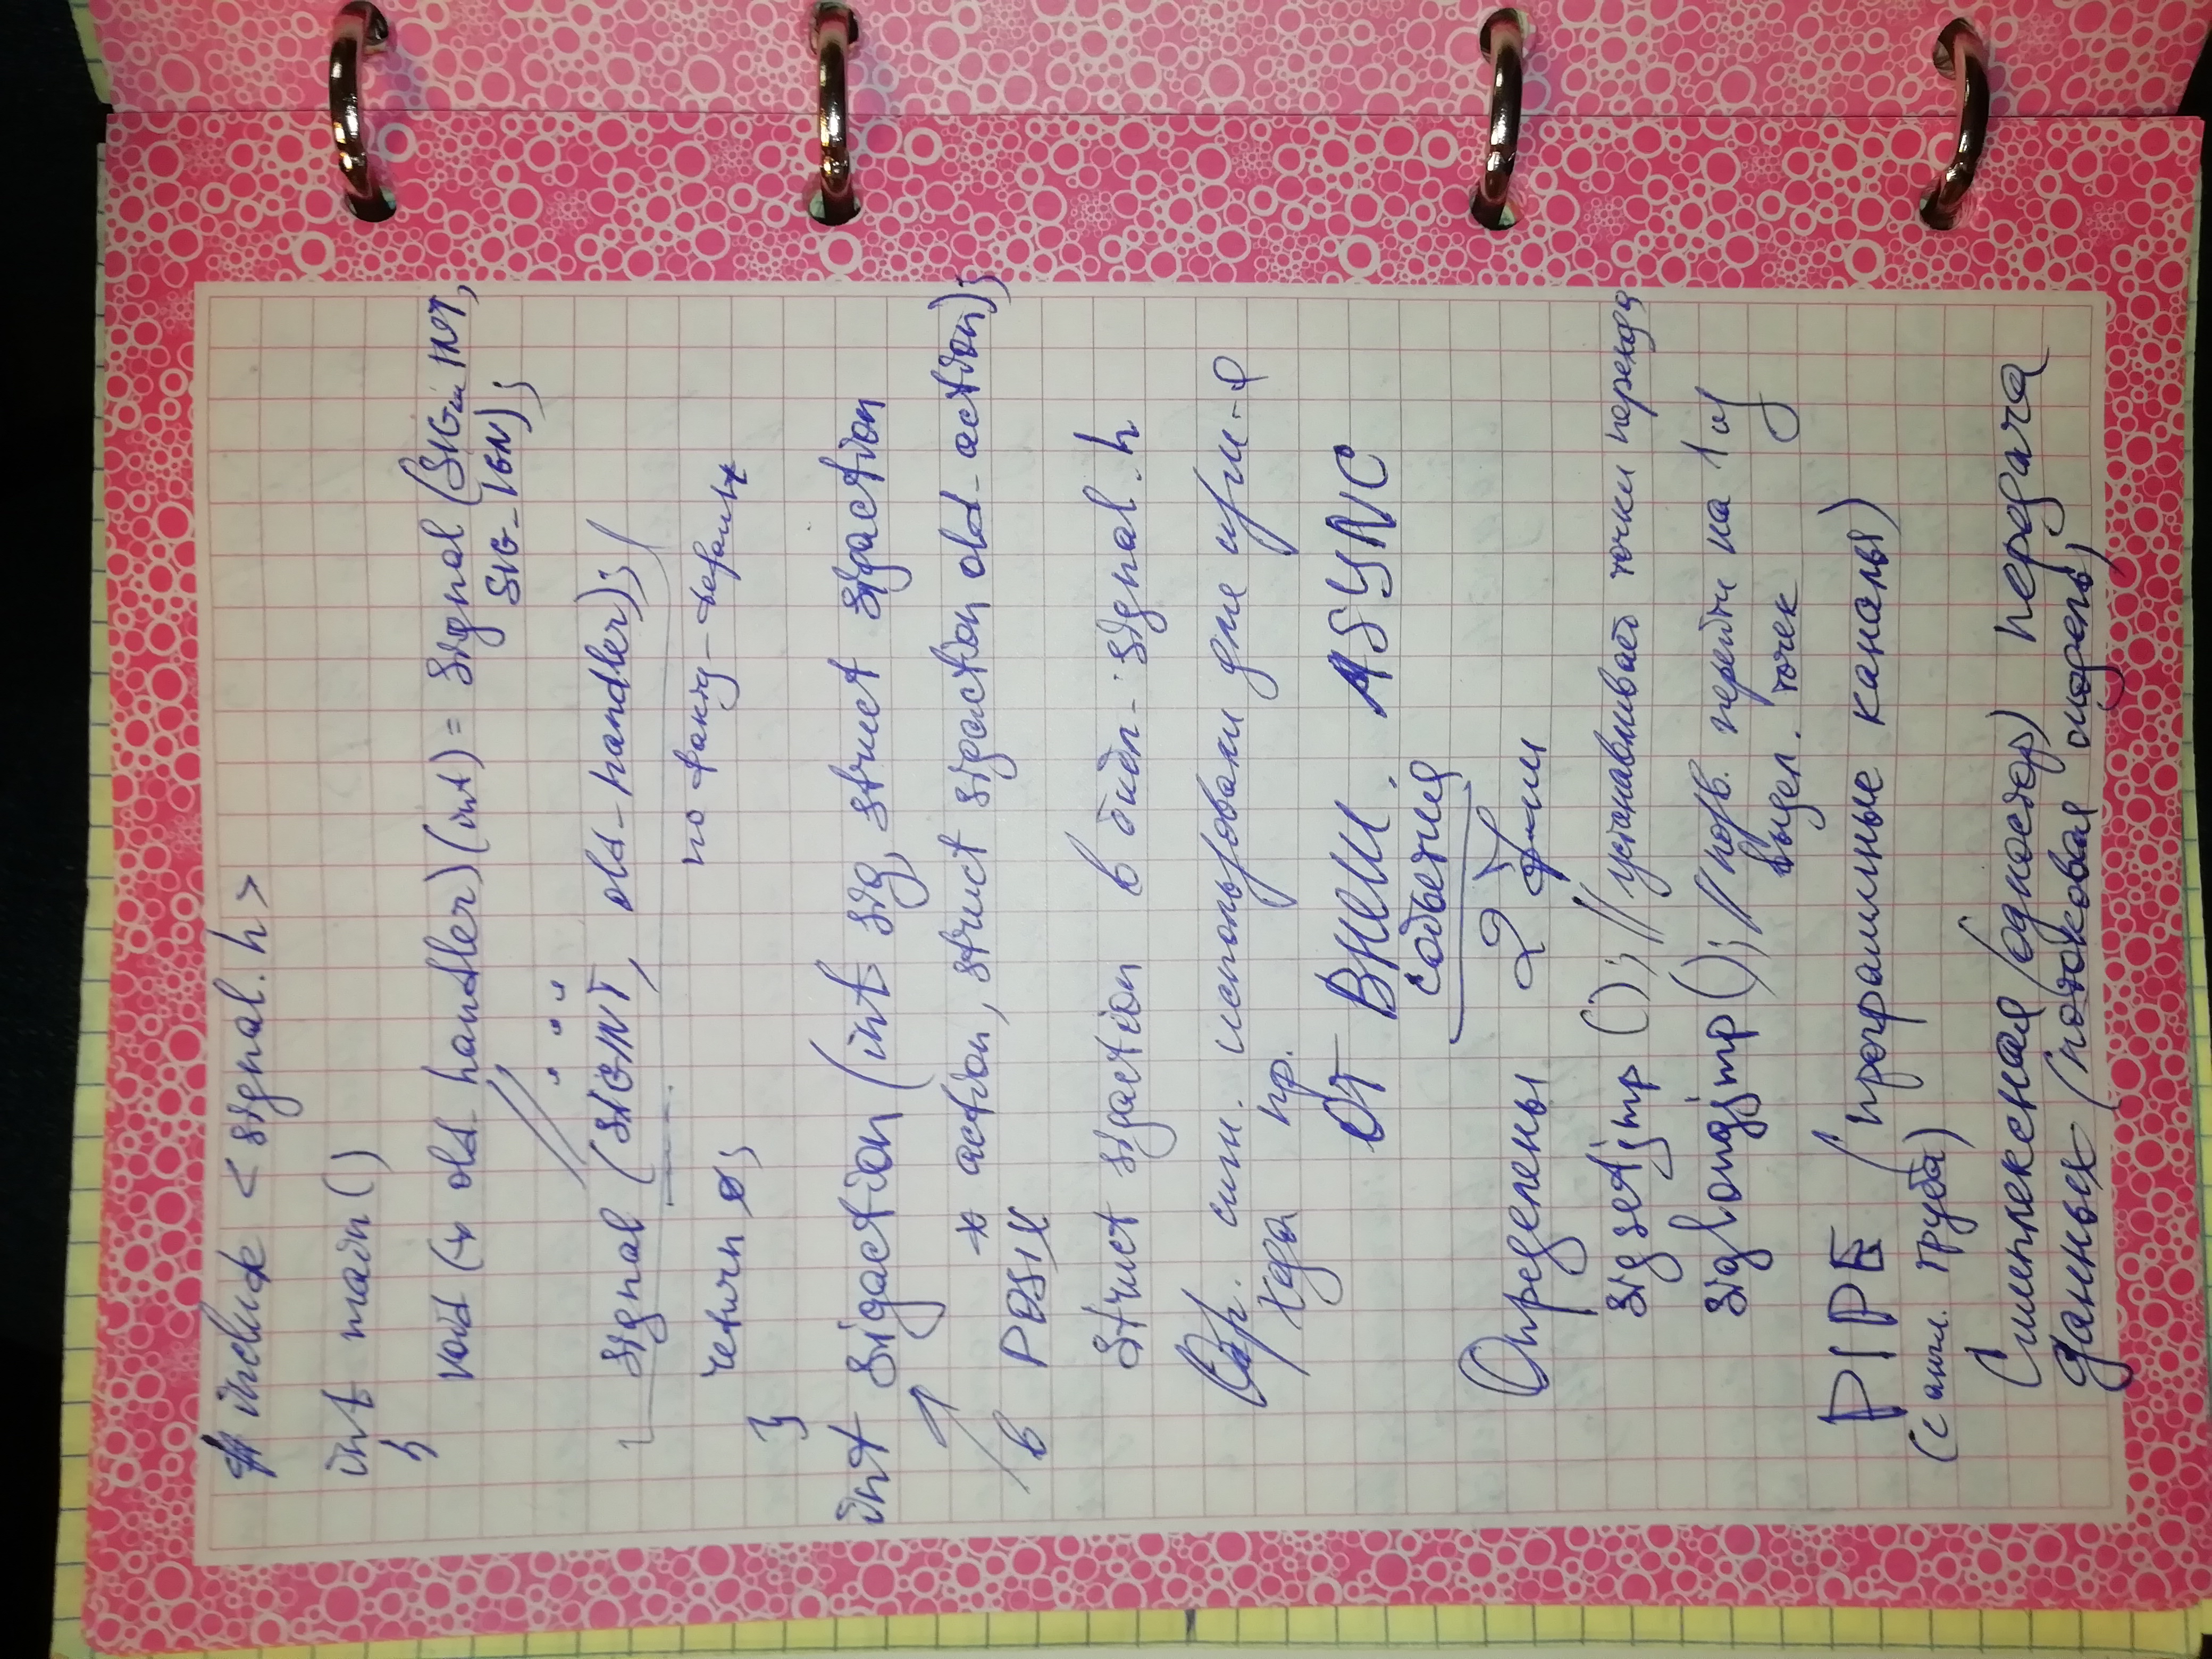 #include <signal.h>
int main()
{
void (* old_handler)(int) = signal (SIG_INT,
SIG_IGN);
// ...
signal (SIGINT, old_handler);
по факту - default
return 0;
}
int sigaction (int sig, struct sigaction
* action, struct sigaction old_action);
в POSIX
struct sigaction в библ. signal.h
Обр. сигн. использовали для изм-я
хода пр.
ОТ ВНЕШ. ASYNC
события
Определены 2 ф-ии
sigsetjmp (); // устанавливает точки перехода
siglongjmp (); // позв. перейти на 1 из
выдел. точек
PIPE (программные каналы)
(с англ. труба)
Симплексная (одностор) передача
данных (потоковая модель)